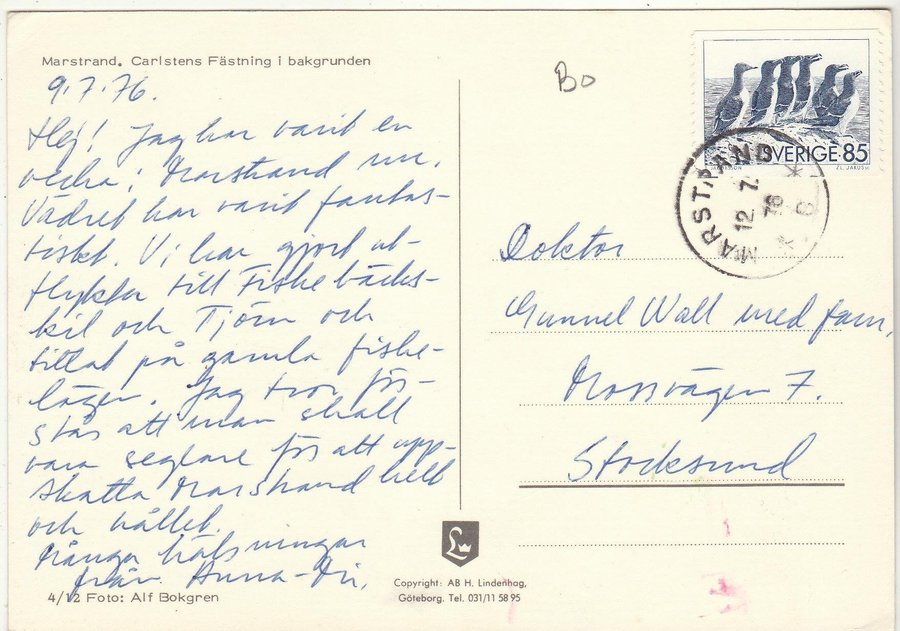 Marstrand. Carlstens Fästning i bakgrunden
9.7.76.
Hej! Jag har varit en
vecka i Marstrand nu.
Vädret har varit fantas-
tiskt. Vi har gjort ut-
flykter till Fiskebäcks-
kil och Tjörn och
tittat på gamla fiske-
lägen. Jag tror för-
stås att man skall
vara seglare för att upp-
skatta Marstrand helt
och hållet.
Många hälsningar
från Anna-Mi.
4/12 Foto: Alf Bokgren
Bo
SVERIGE 85
MARSTRAND
12. 7.
76
Doktor
Gunnel Wall med fam.
Mossvägen 7.
Stocksund
L
Copyright: AB H. Lindenhag,
Göteborg. Tel. 031/11 58 95